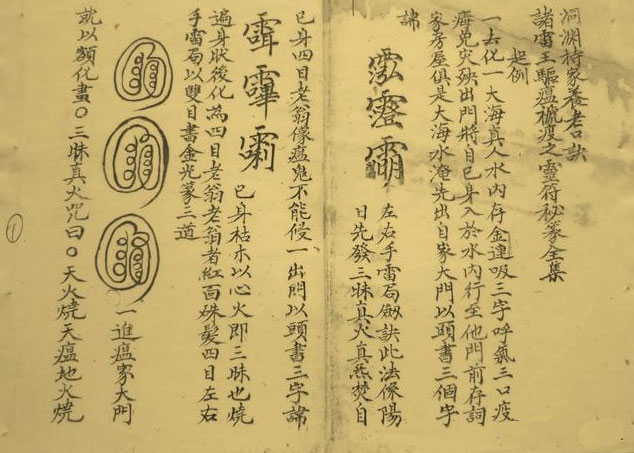 洞淵持家養老口訣
諸雷王驅瘟疫之靈符秘篆全集
起例
一去化一大海真人水內存金連吸三字呼氣三口疫
癘免災殃出門將自己身入於水內行至他門前存詞
家房屋俱是大海水淹先出自家大門以頭書三個字
諱
左右手雷局劍訣此法係陽
日先發三昧真火真炁焚自
已身四目老翁像瘟鬼不能侵一出門以頭書三字諱
已身枯木以心火即三昧也燒
遍身狀後化為四目老翁老翁者紅面硃髮四目左右
手雷局以雙目書金光篆三道
一進瘟家大門
就以額化畫〇三昧真火咒曰〇天火燒天瘟地火燒
①